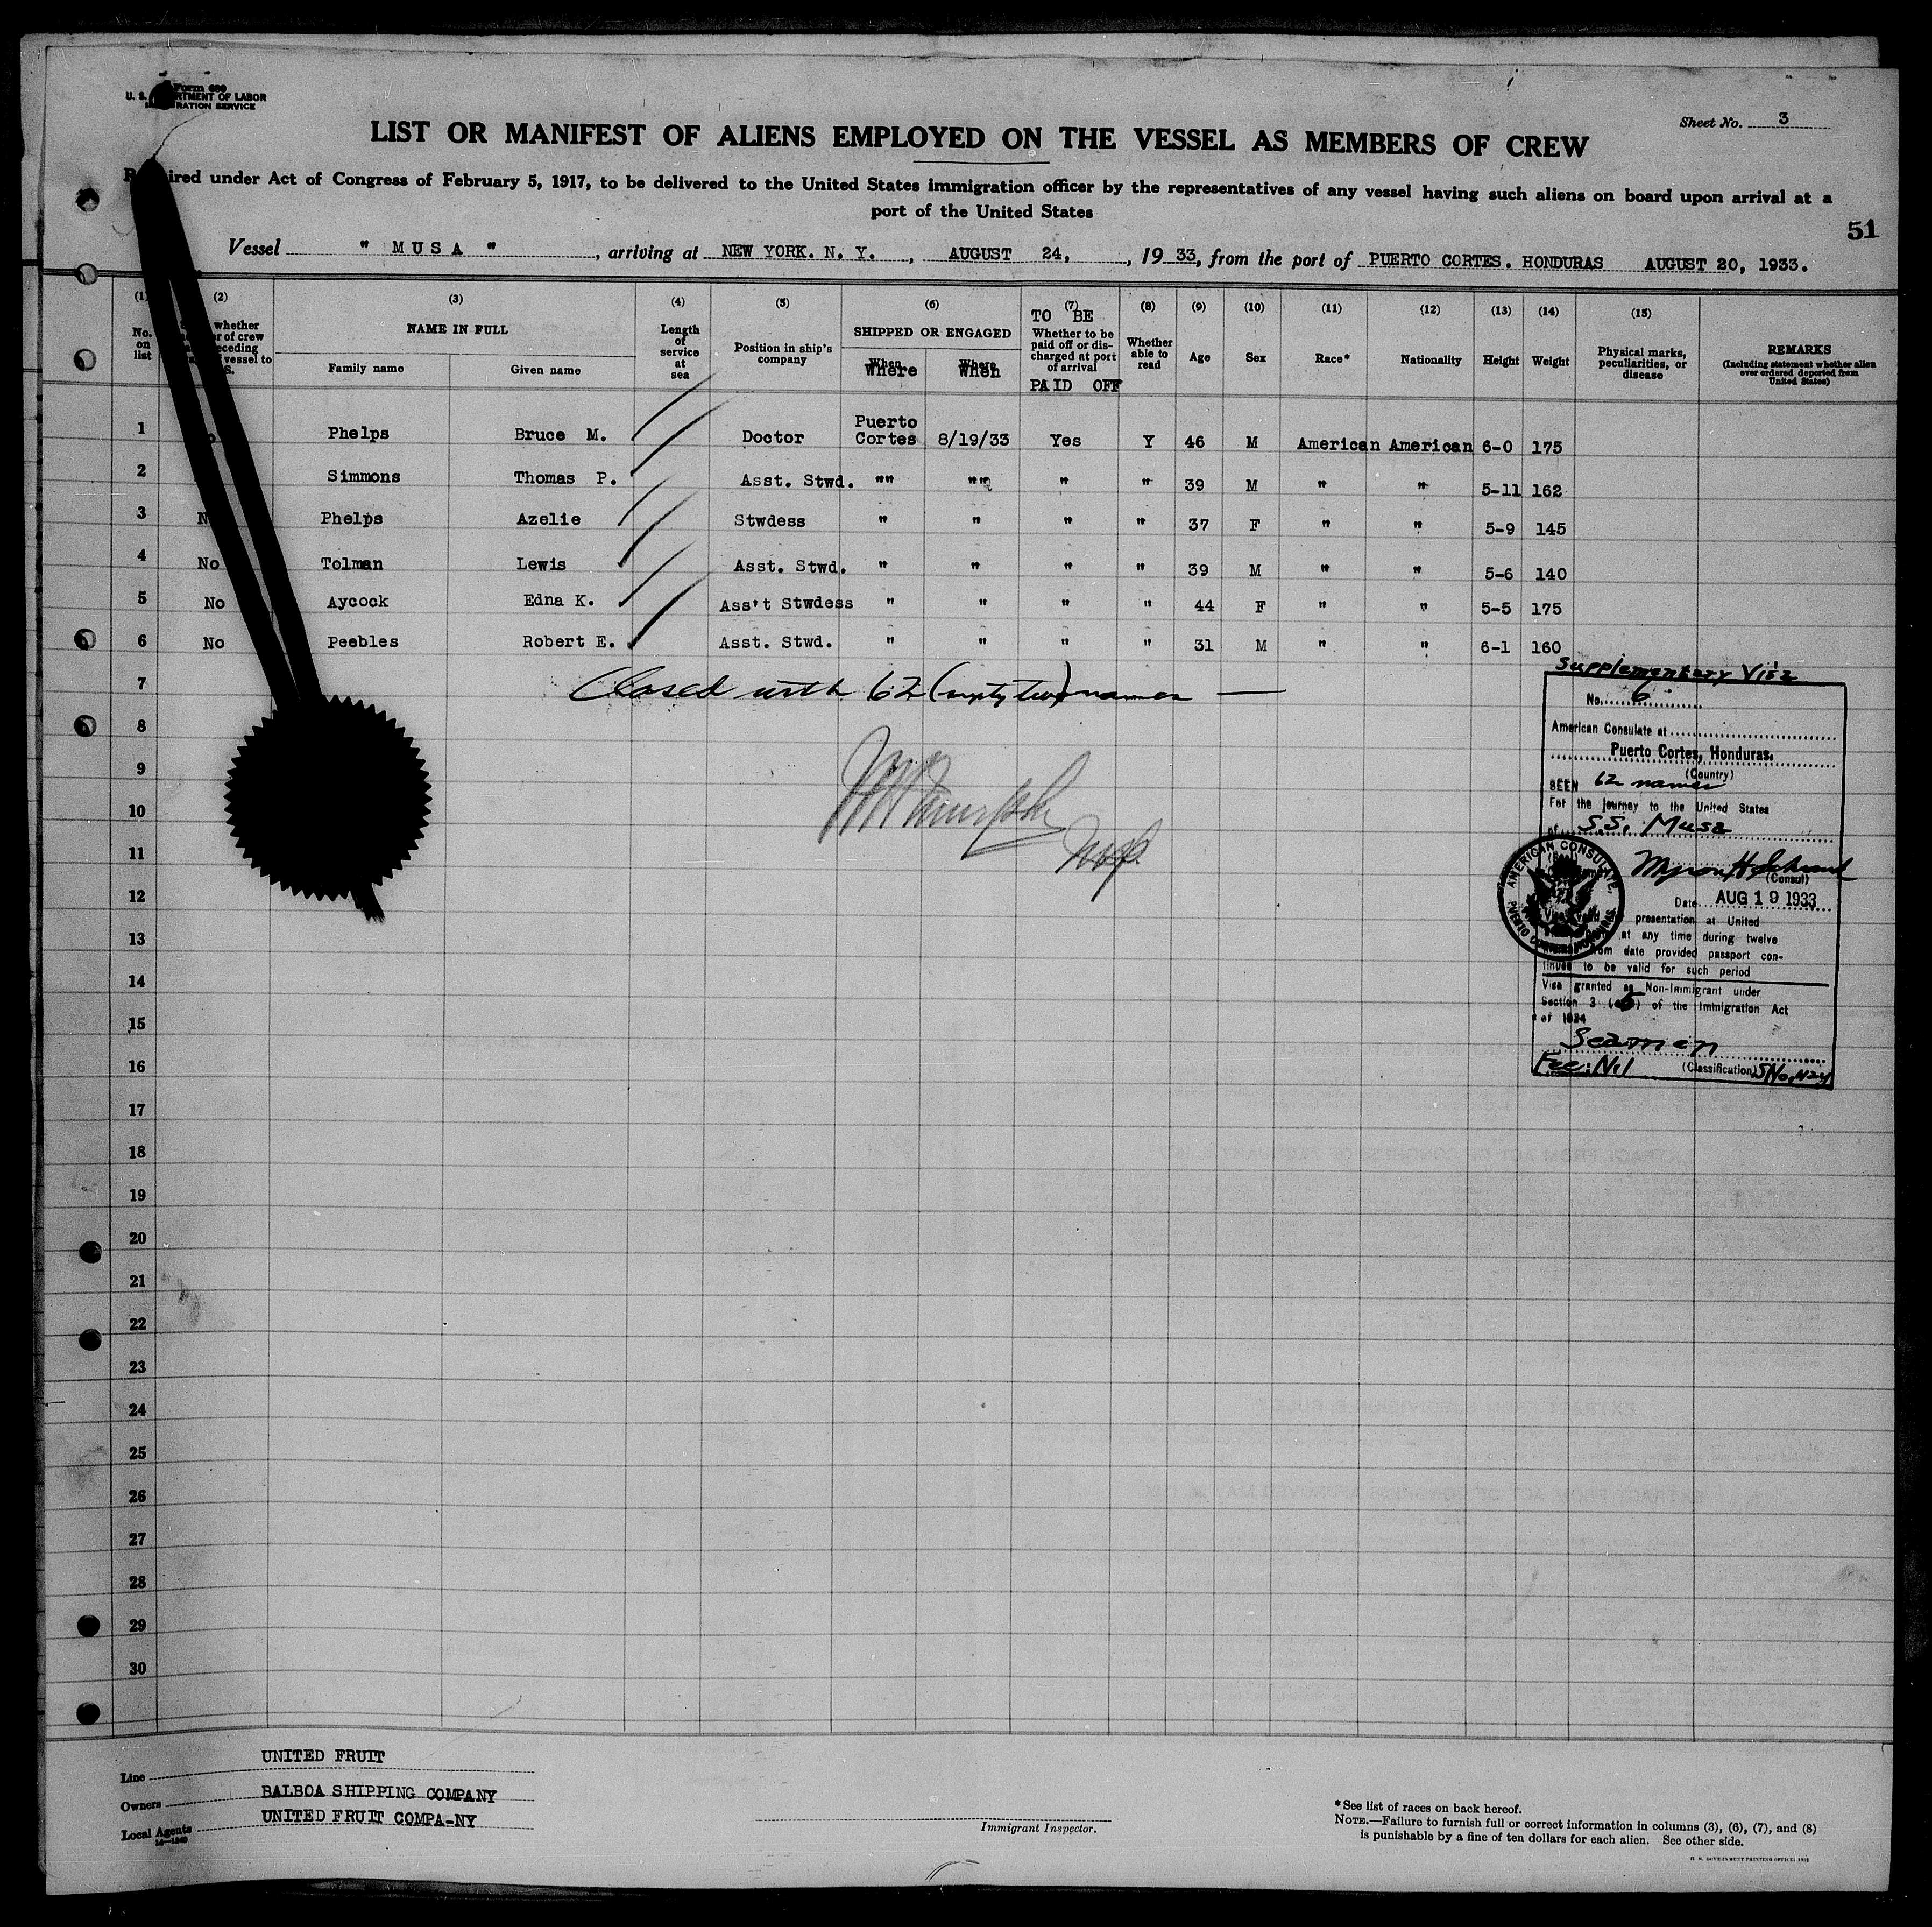 Form 689
U. S. DEPARTMENT OF LABOR
IMMIGRATION SERVICE
Sheet No. 3
LIST OR MANIFEST OF ALIENS EMPLOYED ON THE VESSEL AS MEMBERS OF CREW
Required under Act of Congress of February 5, 1917, to be delivered to the United States immigration officer by the representatives of any vessel having such aliens on board upon arrival at a
port of the United States
51
Vessel " MUSA ", arriving at NEW YORK. N. Y., AUGUST 24, , 1933, from the port of PUERTO CORTES. HONDURAS AUGUST 20, 1933.
(1) (2) (3) (4) (5) (6) (7) (8) (9) (10) (11) (12) (13) (14) (15)
No. on list
whether
of crew
vessel to
NAME IN FULL
Family name Given name
Length of service at sea
Position in ship's company
SHIPPED OR ENGAGED
When Where
Where When
TO BE
Whether to be paid off or discharged at port of arrival
PAID OFF
Whether able to read
Age Sex Race* Nationality Height Weight
Physical marks, peculiarities, or disease
REMARKS
(Including statement whether alien ever ordered deported from United States)
1 Phelps Bruce M. Doctor Puerto Cortes 8/19/33 Yes Y 46 M American American 6-0 175
2 Simmons Thomas P. Asst. Stwd. "" "" " " 39 M " " 5-11 162
3 Phelps Azelie Stwdess " " " " 37 F " " 5-9 145
4 No Tolman Lewis Asst. Stwd. " " " " 39 M " " 5-6 140
5 No Aycock Edna K. Ass't Stwdess " " " " 44 F " " 5-5 175
6 No Peebles Robert E. Asst. Stwd. " " " " 31 M " " 6-1 160
7 Closed with 62 (sixty two) names —
8
9
10
11
12
13
14
15
16
17
18
19
20
21
22
23
24
25
26
27
28
29
30
Supplementary Visa
No. 6
American Consulate at
Puerto Cortes, Honduras.
(Country)
SEEN 62 names
For the journey to the United States
of S.S. Musa
(Consul)
Date AUG 19 1933
presentation at United
at any time during twelve
from date provided passport con-
tinues to be valid for such period
Visa granted as Non-Immigrant under
Section 3 (5) of the Immigration Act
of 1924
Seamen
(Classification)
Fee: Nil
AMERICAN CONSULATE
Line UNITED FRUIT
Owners BALBOA SHIPPING COMPANY
Local Agents UNITED FRUIT COMPA-NY
Immigrant Inspector.
*See list of races on back hereof.
NOTE.—Failure to furnish full or correct information in columns (3), (6), (7), and (8)
is punishable by a fine of ten dollars for each alien. See other side.